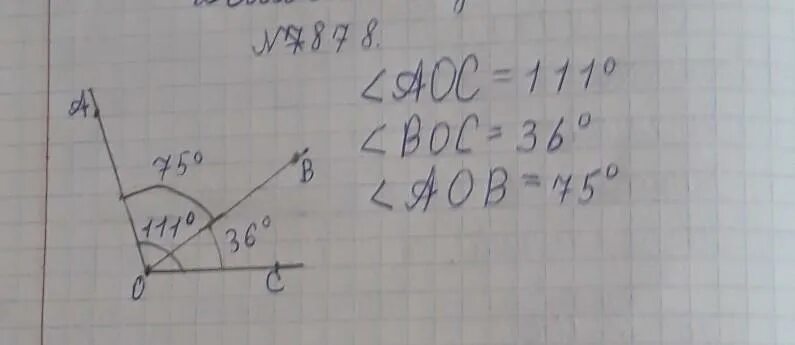 №7878.
∠AOC = 111°
∠BOC = 36°
∠AOB = 75°
A
75°
B
111°
36°
O
C